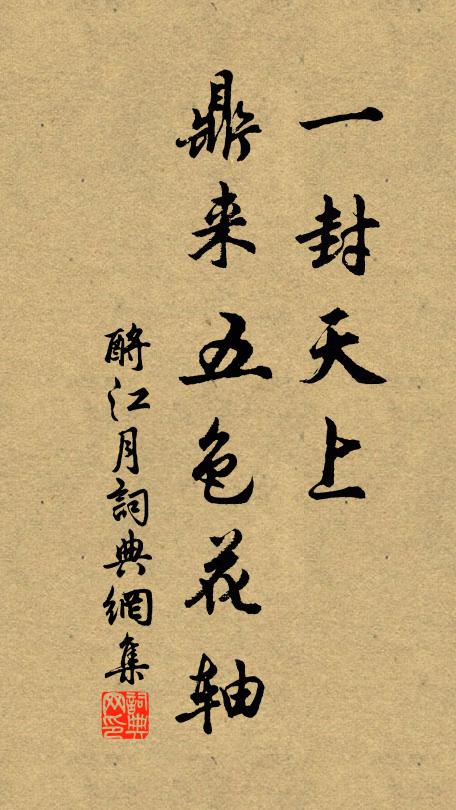 一封天上
鼎来五色花轴
酹江月詞典網集
詞典网印